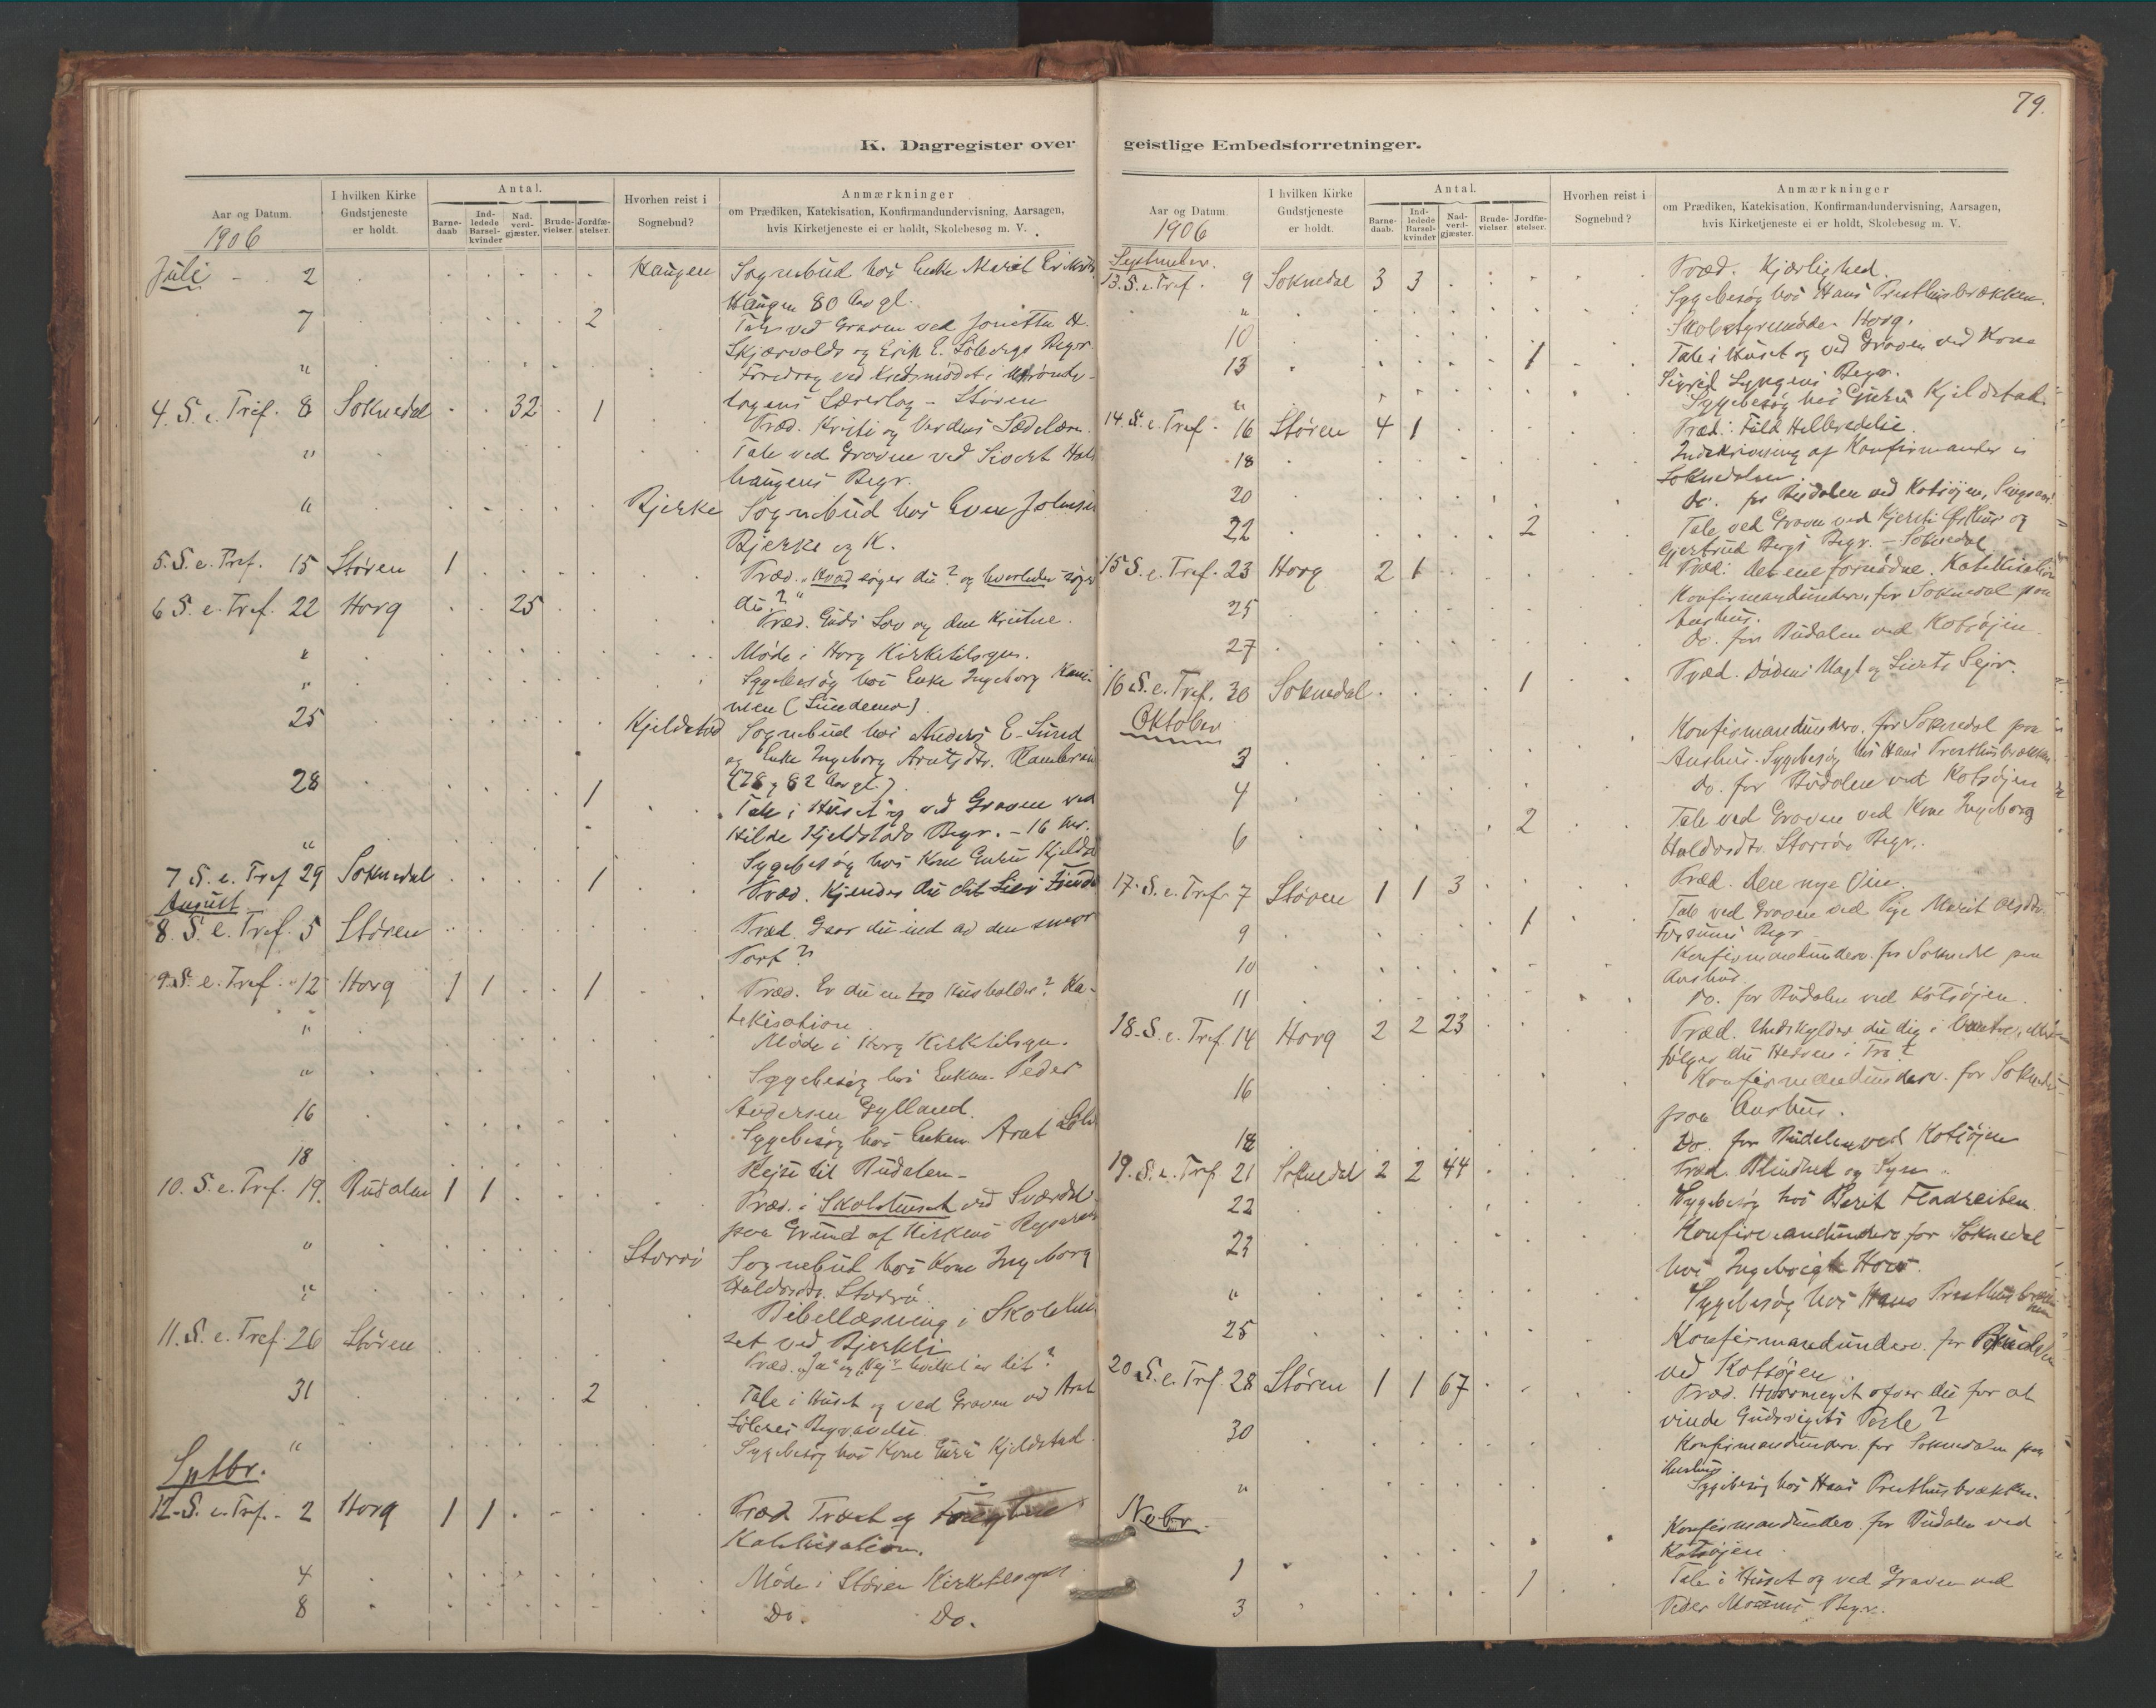 79.
K. Dagregister over
geistlige Embedsforretninger.
Aar og Datum.
1906
I hvilken Kirke
Gudstjeneste
er holdt.
Antal.
Barne-
daab
Ind-
ledede
Barsel-
kvinder
Nad.
verd-
gjæster.
Brude-
vielser.
Jordfæ-
stelser.
Hvorhen reist i
Sognebud?
Anmærkninger
om Prædiken, Katekisation, Konfirmandundervisning, Aarsagen,
hvis Kirketjeneste ei er holdt, Skolebesøg m. V.
Juli 2 Haugen Sognebud hos Enke Marit
Haugen 80 Aar gl.
7 2 Tale ved Graven ved H.
Skjærvolds og Erik E. Begr.
" Foredrag ved Kredsmødet i
Lærerlag - Støren
4. S. e. Tref. 8 Soknedal 32 1 Præd. Kristi og Verdens
" Tale ved Graven ved Sivert
haugens Begr.
" Bjerke Sognebud hos Even Johnsen
Bjerke og K.
5. S. e. Tref. 15 Støren 1 Præd. "Hvad søger du? og hvorledes søger
du?"
6 S. e. Tref. 22 Horg 25 Præd. Guds Lov og den Kristne.
" Møde i Horg Kirketilsyn.
" Sygebesøg hos Enke Ingeborg
25 Kjeldstad Sognebud hos Anders E. Lund
og Enke Ingeborg
(78 og 82 Aar gl.)
28 1 Tale i Huset og ved Graven ved
Hilde Kjeldstads Begr. - 16 Aar.
" Sygebesøg hos Kone Guru
7 S. e. Tref 29 Soknedal 1 Præd. Kjender du dit Livs
August
8. S. e. Tref. 5 Støren Præd. Gaar du ind ad den
Port?
9. S. e. Tref. 12 Horg 1 1 1 Præd. Er du en tro Husholder? Ka-
tekisation
" Møde i Horg Kirketilsyn.
" Sygebesøg hos Enkem. Peder
Andersen Gylland.
16 Sygebesøg hos Enkem. Arnt
18 Rejse til Budalen -
10. S. e. Tref. 19. Budalen 1 1 Præd. i Skolehuset ved
paa Grund af Kirkens
" Storrø Sognebud hos Kone Ingeborg
Haldorsdtr. Storrø.
" Bibellæsning i Skolehu
set ved Bjerkli
11. S. e. Tref. 26 Støren Præd. "Ja" og "Nej" - hvilket er dit?
31 2 Tale i Huset og ved Graven ved Arnt
" Sygebesøg hos Kone Guru Kjeldstad.
Sptbr.
12. S. e. Tref. 2 Horg 1 1 Præd Træet og Frugten
Katekisation.
4 Møde i Støren Kirketilsyn
8 Do. Do.
Aar og Datum.
1906
I hvilken Kirke
Gudstjeneste
er holdt.
Antal.
Barne-
daab.
Ind-
ledede
Barsel-
kvinder
Nad-
verd-
gjæster.
Brude-
vielser.
Jordfæ-
stelser.
Hvorhen reist i
Sognebud?
Anmærkninger
om Prædiken, Katekisation, Konfirmandundervisning, Aarsagen,
hvis Kirketjeneste ei er holdt, Skolebesøg m. V.
September.
13. S. e. Tref. 9 Soknedal 3 3 Præd. Kjærlighed.
" Sygebesøg hos Hans Presthusbrækken.
10 Skolestyremøde - Horg.
13 1 Tale i Huset og ved Graven ved Kone
Sigrid Begr.
" Sygebesøg hos Guru Kjeldstad.
14. S. e. Tref. 16 Støren 4 1 Præd. Fuld Helbredelse.
18 Indskrivning af Konfirmander i
Soknedalen.
20 do. for Budalen ved Kotsøjen,
22 2 Tale ved Graven ved Kjersti og
Gjertrud Bergs Begr. - Soknedal
15 S. e. Tref. 23 Horg 2 1 Præd. Det ene fornødne. Katekisation
25 Konfirmandunderv. for Soknedal paa
Aushus.
27 Do. for Budalen ved Kotsøjen.
16 S. e. Tref. 30 Soknedal 1 Præd. Dødens Magt og Livets Sejr.
Oktober
3 Konfirmandunderv. for Soknedal paa
Aushus. Sygebesøg hos Hans Presthusbrækken
4 do. for Budalen ved Kotsøjen
6 2 Tale ved Graven ved Kone Ingeborg
Haldorsdtr. Storrøs Begr.
17. S. e. Tref. 7 Støren 1 1 3 Præd. Dere nye
9 1 Tale ved Graven ved Pige Marit Olsdtr.
Begr
10 Konfirmandunderv. for Soknedal paa
Aushus.
11 Do. for Budalen ved Kotsøjen.
18. S. e. Tref. 14 Horg 2 2 23 Præd. Undskylder du dig i
følger du Herren i Tro?
16 Konfirmandunderv. for Soknedal
paa Aushus.
18 Do. for Budalen ved Kotsøjen
19. S. e. Tref 21 Soknedal 2 2 44 Præd. Blindhed og Syn.
22 Sygebesøg hos Berit
23 Konfirmandunderv for Soknedal
hos
" Sygebesøg hos Hans Presthusbrækken
25 Konfirmandunderv. for Budalen
ved Kotsøjen
20 S. e. Tref. 28 Støren 1 1 67 Præd. Hvormeget ofrer du for at
vinde Gudsrigets Perle?
30 Konfirmandunderv. for Soknedalen paa
Aushus
" Sygebesøg hos Hans Presthusbrækken.
Novbr.
1 Konfirmandunderv. for Budalen ved
Kotsøjen
3 1 Tale i Huset og ved Graven ved
Peder Begr.